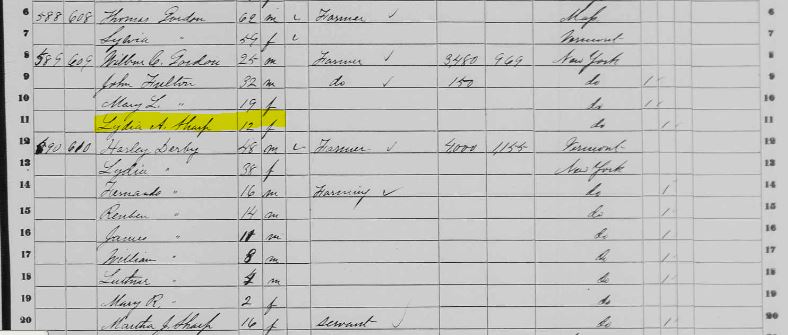 6 588 608 Thomas Gordon 62 m Farmer ✓ Mass 6
7 Sylvia " 59 f Vermont 7
8 589 609 Wilbur C. Gordon 25 m Farmer ✓ 3480 969 New York 8
9 John Fulton 32 m do ✓ 150 do 1 9
10 Mary L. " 19 f do 1 10
11 Lydia A. Sharp 12 f do 1 11
12 590 610 Harley Derby 48 m Farmer ✓ 4000 1,155 Vermont 12
13 Lydia " 38 f New York 13
14 Fernando " 16 m Farming ✓ do 1 14
15 Reuben " 14 m do 1 15
16 James " 11 m do 1 16
17 William " 8 m do 1 17
18 Luther " 4 m do 1 18
19 Mary R. " 2 f do 19
20 Martha J. Sharp 16 f servant ✓ do 1 20